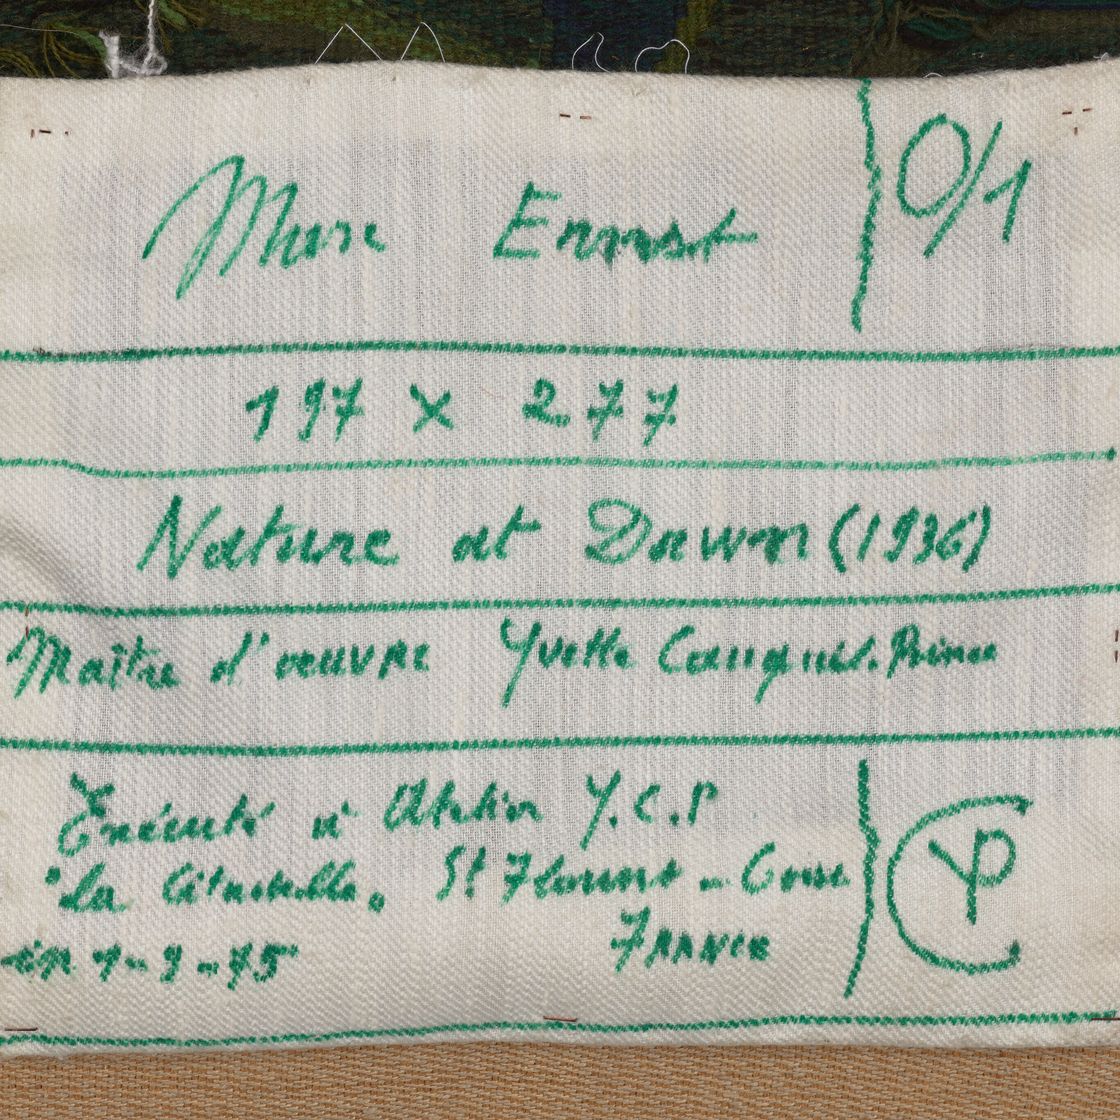 Max Ernst 0/1
197 x 277
Nature at Dawn (1936)
Maître d'oeuvre Yvette Cauquil-Prince
Exécuté à Atelier Y.C.P
"La Citadelle" St Florent - Corse
FRANCE
en 1-9-75
YCP